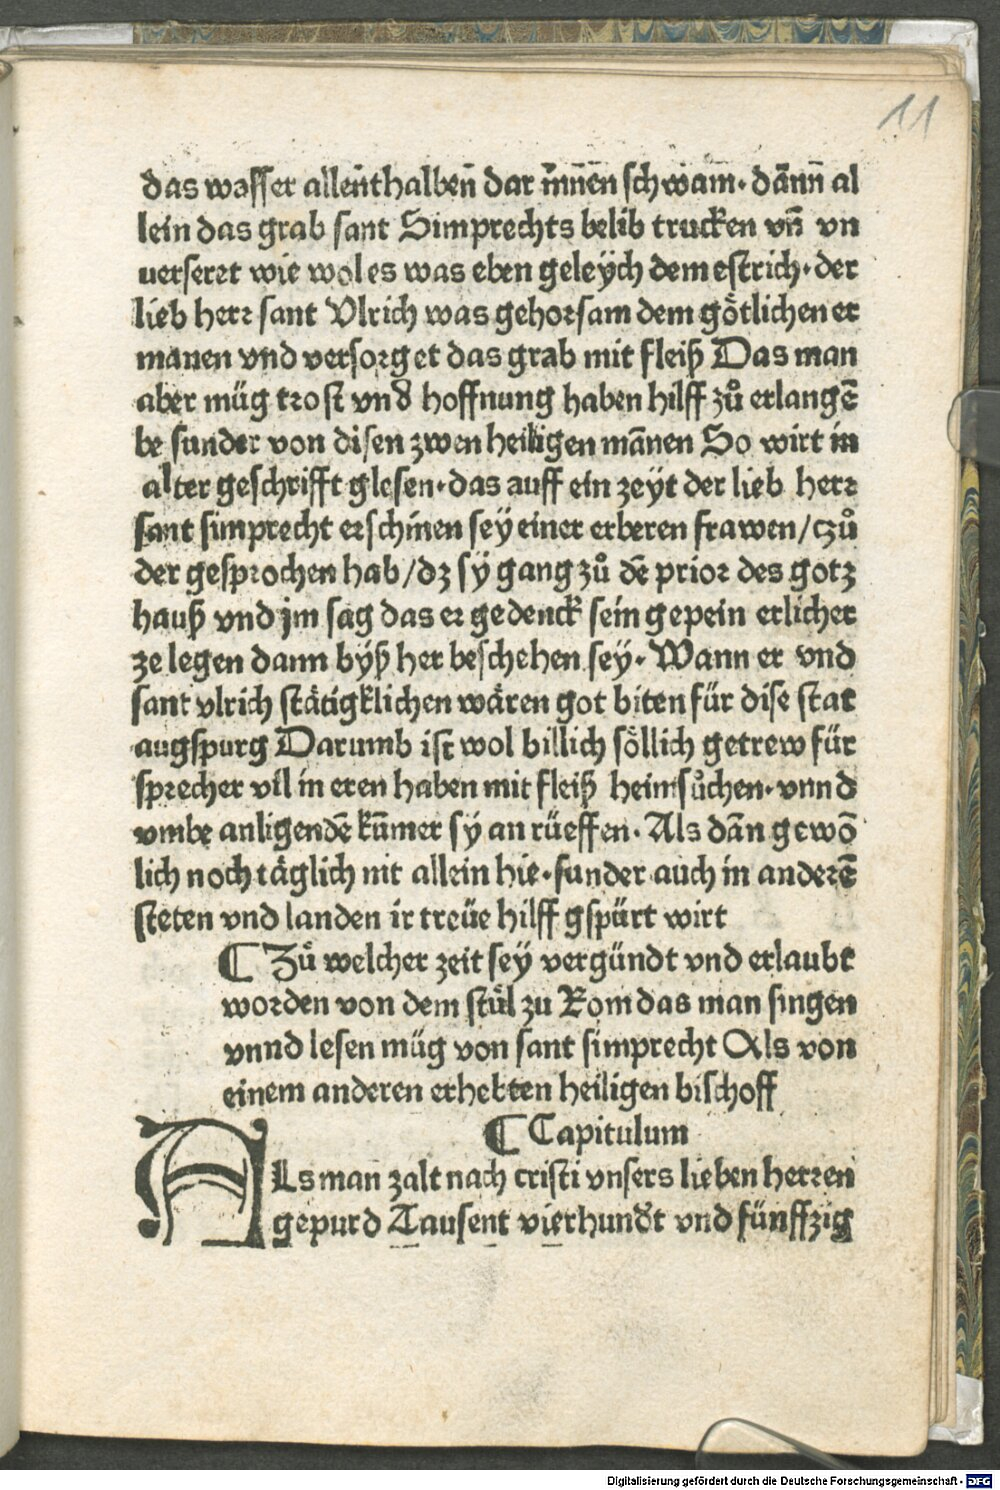 11
das wasser allenthalben̄ dar īn̄nen schwam̄. dan̄n̄ al
lein das grab sant Simprechts belib trucken vn̄ vn
uersert wie wol es was eben geleÿch dem estrich. der
lieb herr sant Vlrich was gehorsam dem gȯtlichen er
manen vnd versorget das grab mit fleiß Das man
aber müg trost vnd hoffnung haben hilff zů erlangē
be sunder von disen zwen heiligen mānen So wirt in
alter geschrifft glesen. das auff ein zeÿt der lieb herr
sant simprecht erschinen seÿ einer erberen frawen/czů
der gesprochen hab/dz sÿ gang zů dē prior des gotz
hauß vnd jm sag das er gedenck sein gepein erlicher
ze legen dann bÿß her beschehen seÿ. Wann er vnd
sant vlrich stätigklichen wären got biten für dise stat
augspurg Darumb ist wol billich söllich getrew für
sprecher vil in eren haben mit fleiß heimsůchen. vnnd
vmbe anligendē kūmer sÿ an rüeffen. Als dān gewō
lich noch täglich nit allein hie. sunder auch in anderē
steten vnd landen ir treüe hilff gspürt wirt
¶ Zů welcher zeit seÿ vergündt vnd erlaubt
worden von dem stůl zu Rom das man singen
vnnd lesen müg von sant simprecht Als von
einem anderen erhebten heiligen bischoff
¶ Capitulum
ALs man zalt nach cristi vnsers lieben herren
gepurd Tausent vierhundt vnd fünffzig
Digitalisierung gefördert durch die Deutsche Forschungsgemeinschaft - DFG